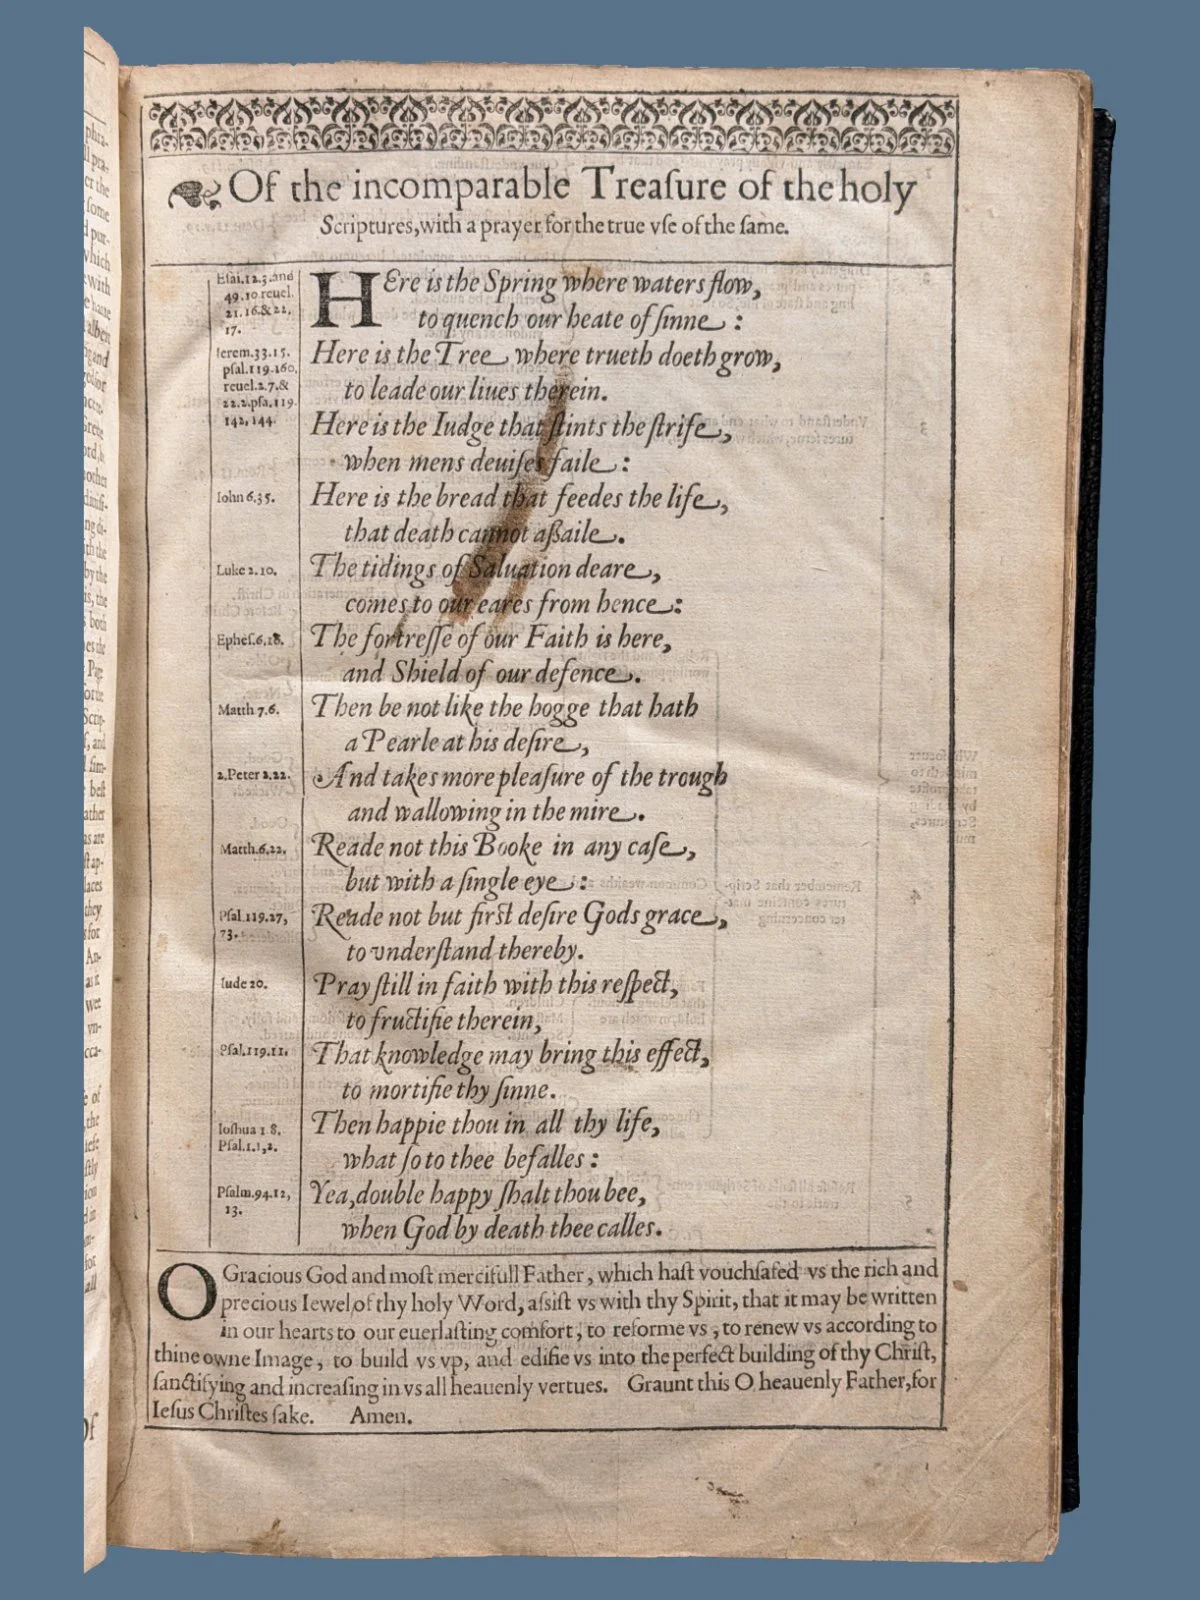 Of the incomparable Treaſure of the holy
Scriptures, with a prayer for the true vſe of the ſame.
Eſai.12.3.and
49.10.reuel.
21.16.& 22,
17.
HEre is the Spring where waters flow,
to quench our heate of ſinne :
Ierem.33.15.
pſal.119.160,
reuel.2.7.&
22.2.pſa.119.
142,144.
Here is the Tree where trueth doeth grow,
to leade our liues therein.
Here is the Iudge that ſtints the ſtrife,
when mens deuiſes faile :
Iohn 6.35.
Here is the bread that feedes the life,
that death cannot aſſaile.
Luke 2.10.
The tidings of Saluation deare,
comes to our eares from hence :
Epheſ.6.18.
The fortreſſe of our Faith is here,
and Shield of our defence.
Matth 7.6.
Then be not like the hogge that hath
a Pearle at his deſire,
2.Peter 2.22.
And takes more pleaſure of the trough
and wallowing in the mire.
Matth.6.22.
Reade not this Booke in any caſe,
but with a ſingle eye :
Pſal.119.27,
73.
Reade not but firſt deſire Gods grace,
to vnderſtand thereby.
Iude 20.
Pray ſtill in faith with this reſpect,
to fructifie therein,
Pſal.119.11.
That knowledge may bring this effect,
to mortifie thy ſinne.
Ioſhua 1 8.
Pſal.1.1,2.
Then happie thou in all thy life,
what ſo to thee befalles :
Pſalm.94.12,
13.
Yea, double happy ſhalt thou bee,
when God by death thee calles.
O Gracious God and moſt mercifull Father, which haſt vouchſafed vs the rich and
precious Iewel of thy holy Word, aſſiſt vs with thy Spirit, that it may be written
in our hearts to our euerlaſting comfort, to reforme vs, to renew vs according to
thine owne Image, to build vs vp, and edifie vs into the perfect building of thy Chriſt,
ſanctifying and increaſing in vs all heauenly vertues. Graunt this O heauenly Father, for
Ieſus Chriſtes ſake. Amen.